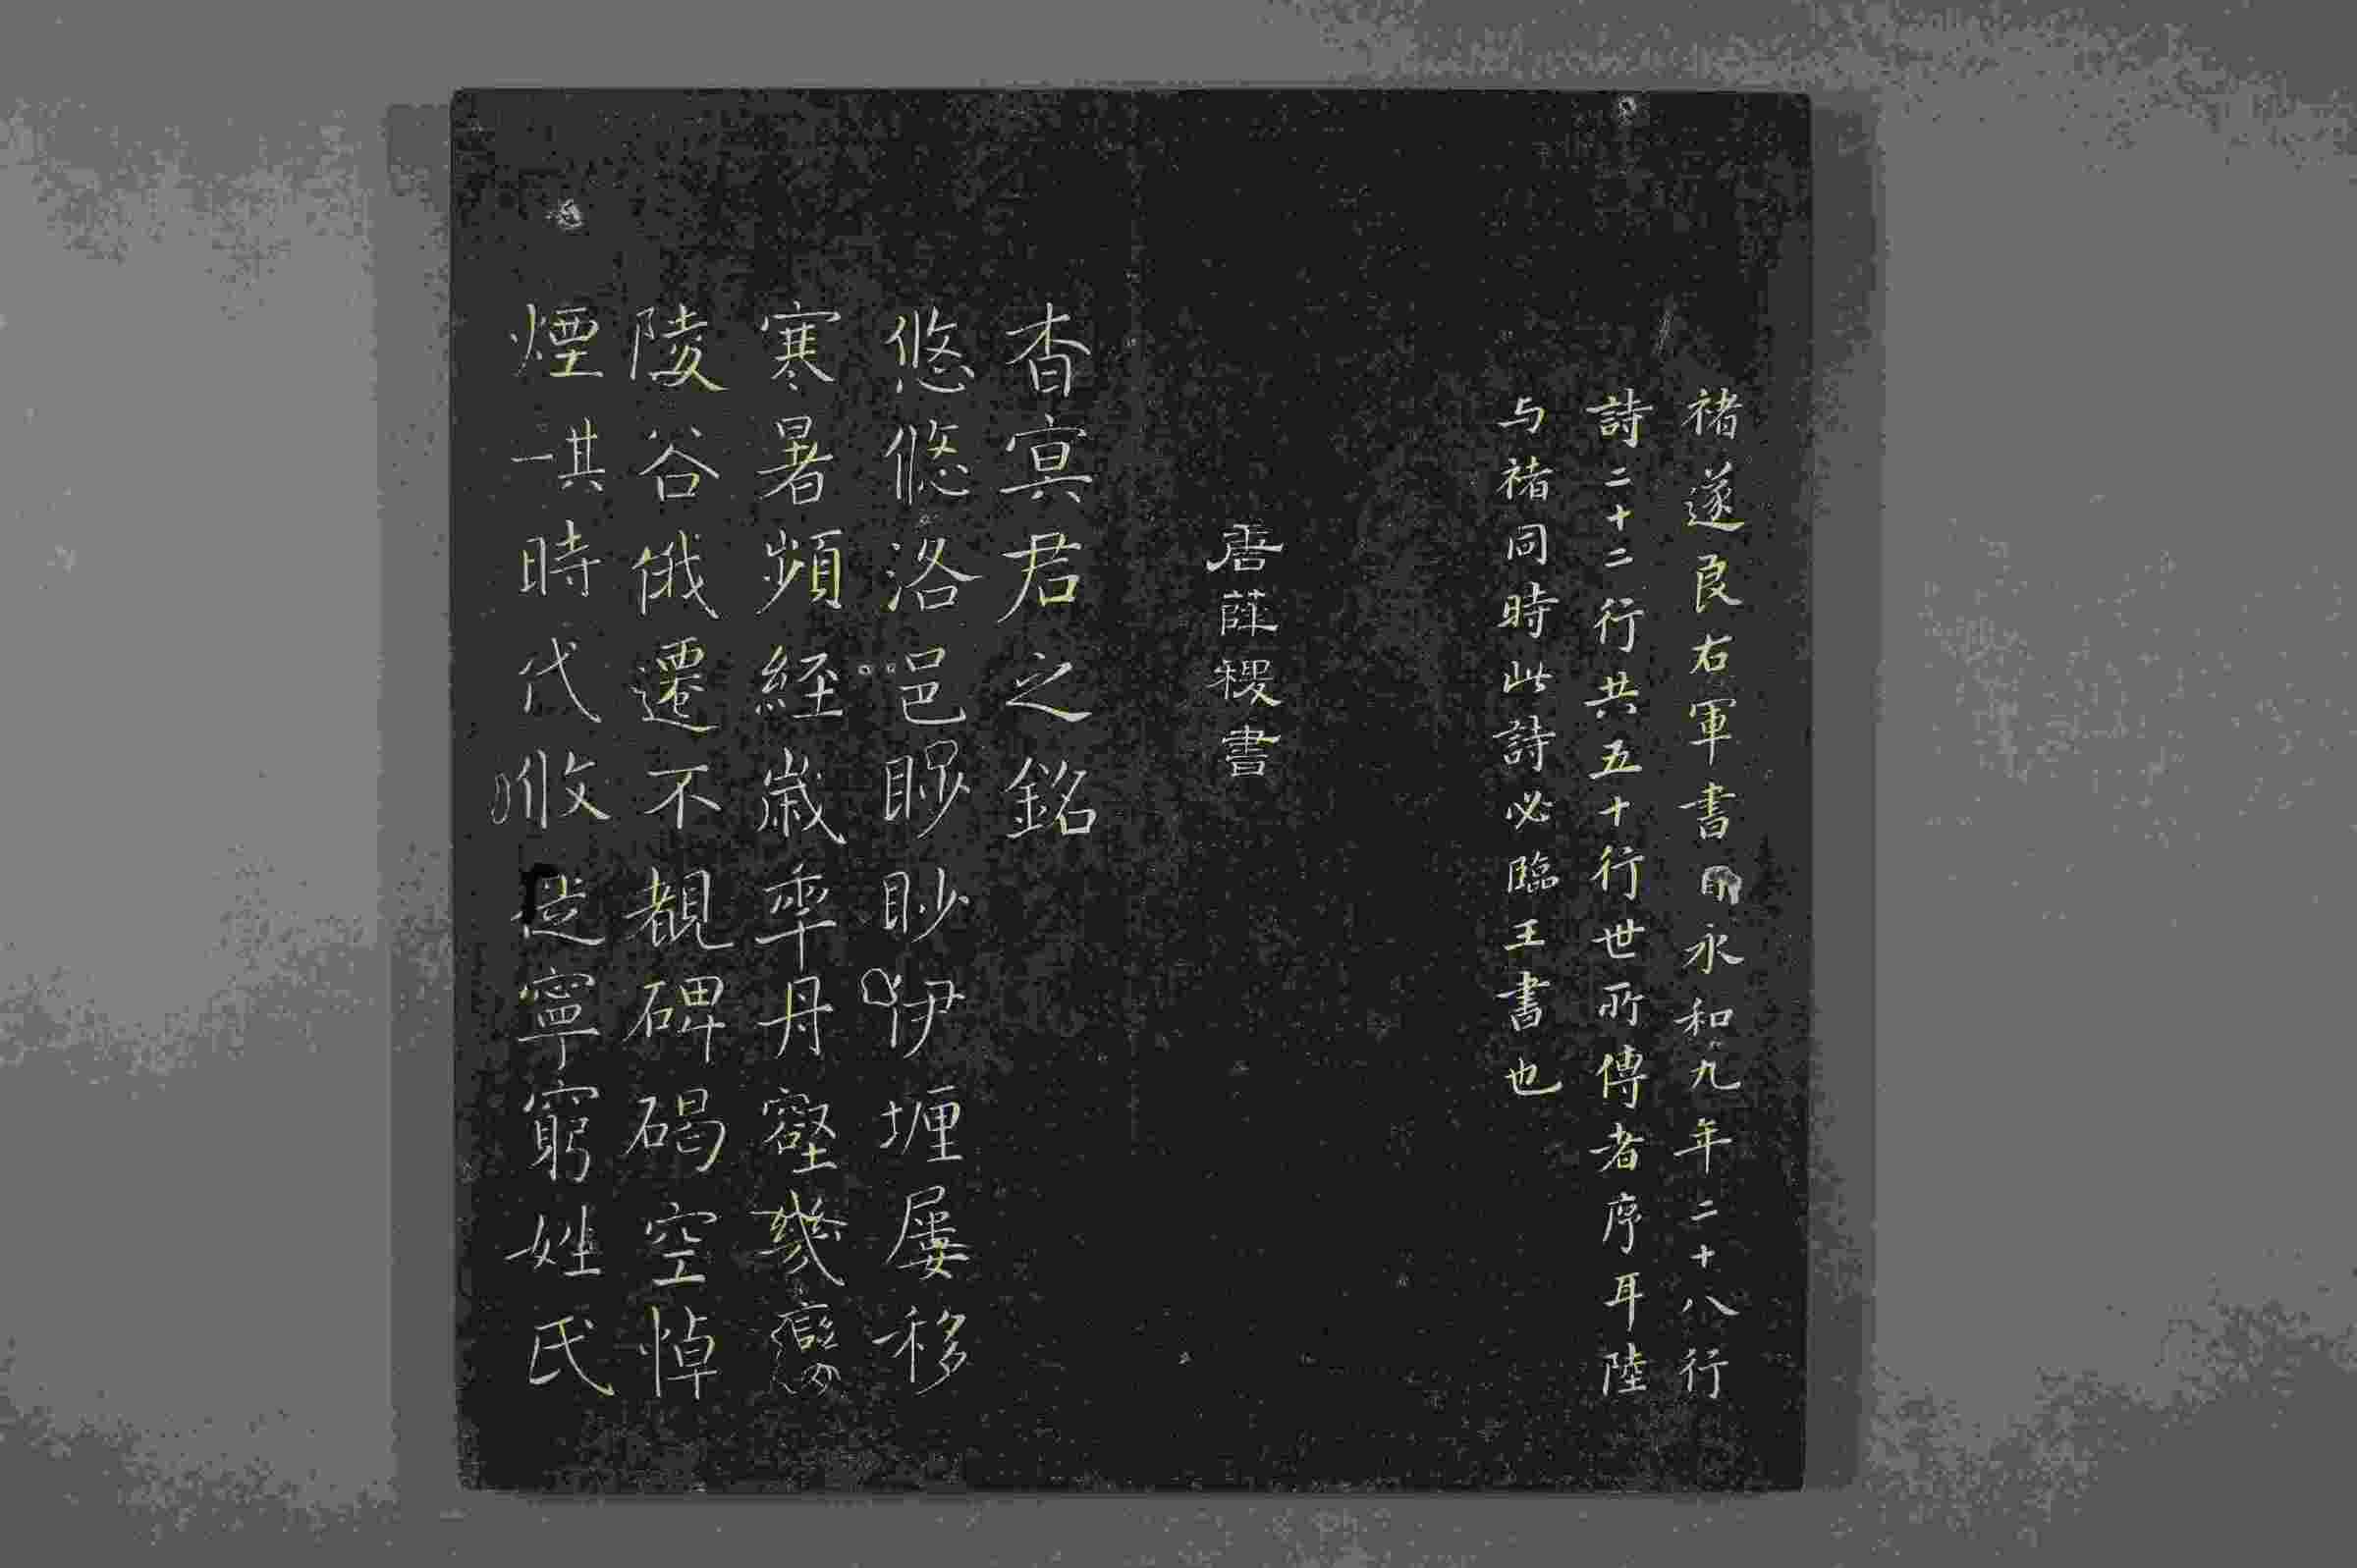 褚遂良右軍書目永和九年二十八行
詩二十二行共五十行世所傳者序耳陸
与褚同時此詩必臨王書也
唐薛稷書
杳冥君之銘
悠悠洛邑眇眇伊壥屢移
寒暑頻經歲年丹壑幾變
陵谷俄遷不覩碑碣空悼
煙其時代攸徙寧窮姓氏